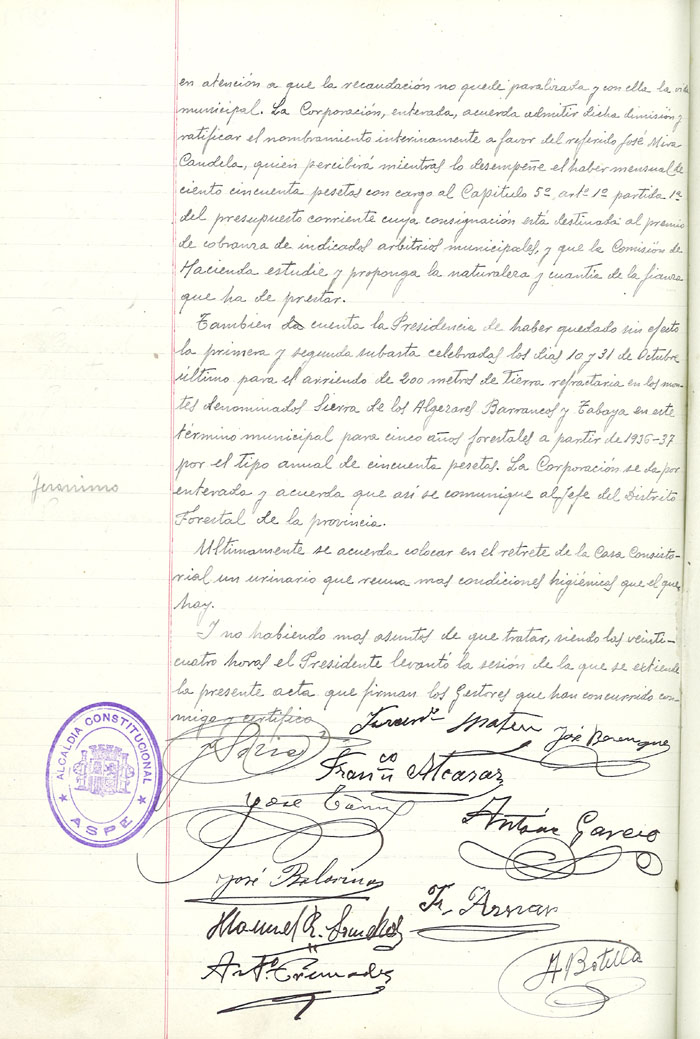 en atención a que la recaudación no quede paralizada y con ella la vida
municipal. La Corporación, enterada, acuerda admitir dicha dimisión y
ratificar el nombramiento interinamente a favor del referido José Mira
Candela, quien percibirá mientras lo desempeñe el haber mensual de
ciento cincuenta pesetas con cargo al Capitulo 5º artº 1º partida 1ª
del presupuesto corriente cuya consignación está destinada al premio
de cobranza de indicados arbitrios municipales, y que la Comisión de
Hacienda estudie y proponga la naturaleza y cuantia de la fianza
que ha de prestar.
Tambien da cuenta la Presidencia de haber quedado sin efecto
la primera y segunda subasta celebradas los dias 10 y 31 de Octubre
último para el arriendo de 200 metros de tierra refractaria en los mon-
tes denominados Sierra de los Algezares Barrancos y Tabaya en este
término municipal para cinco años forestales a partir de 1936-37
por el tipo anual de cincuenta pesetas. La Corporación se da por
enterada y acuerda que asi se comunique al Jefe del Distrito
Forestal de la provincia.
Jeronimo
Ultimamente se acuerda colocar en el retrete de la Casa Consisto-
rial un urinario que reuna mas condiciones higiénicas que el que
hay.
I no habiendo mas asuntos de que tratar, siendo las veinti-
cuatro horas el Presidente levantó la sesión de la que se extiende
la presente acta que firman los Gestores que han concurrido con-
migo y certifico
ALCALDIA CONSTITUCIONAL
ASPE
Mateu
José Berenguer
Franco Alcaraz
José
Antonio Garcia
José Belorinos
Fr. Aznar
Manuel R. Sanchez
Artº Cremades
A Botella